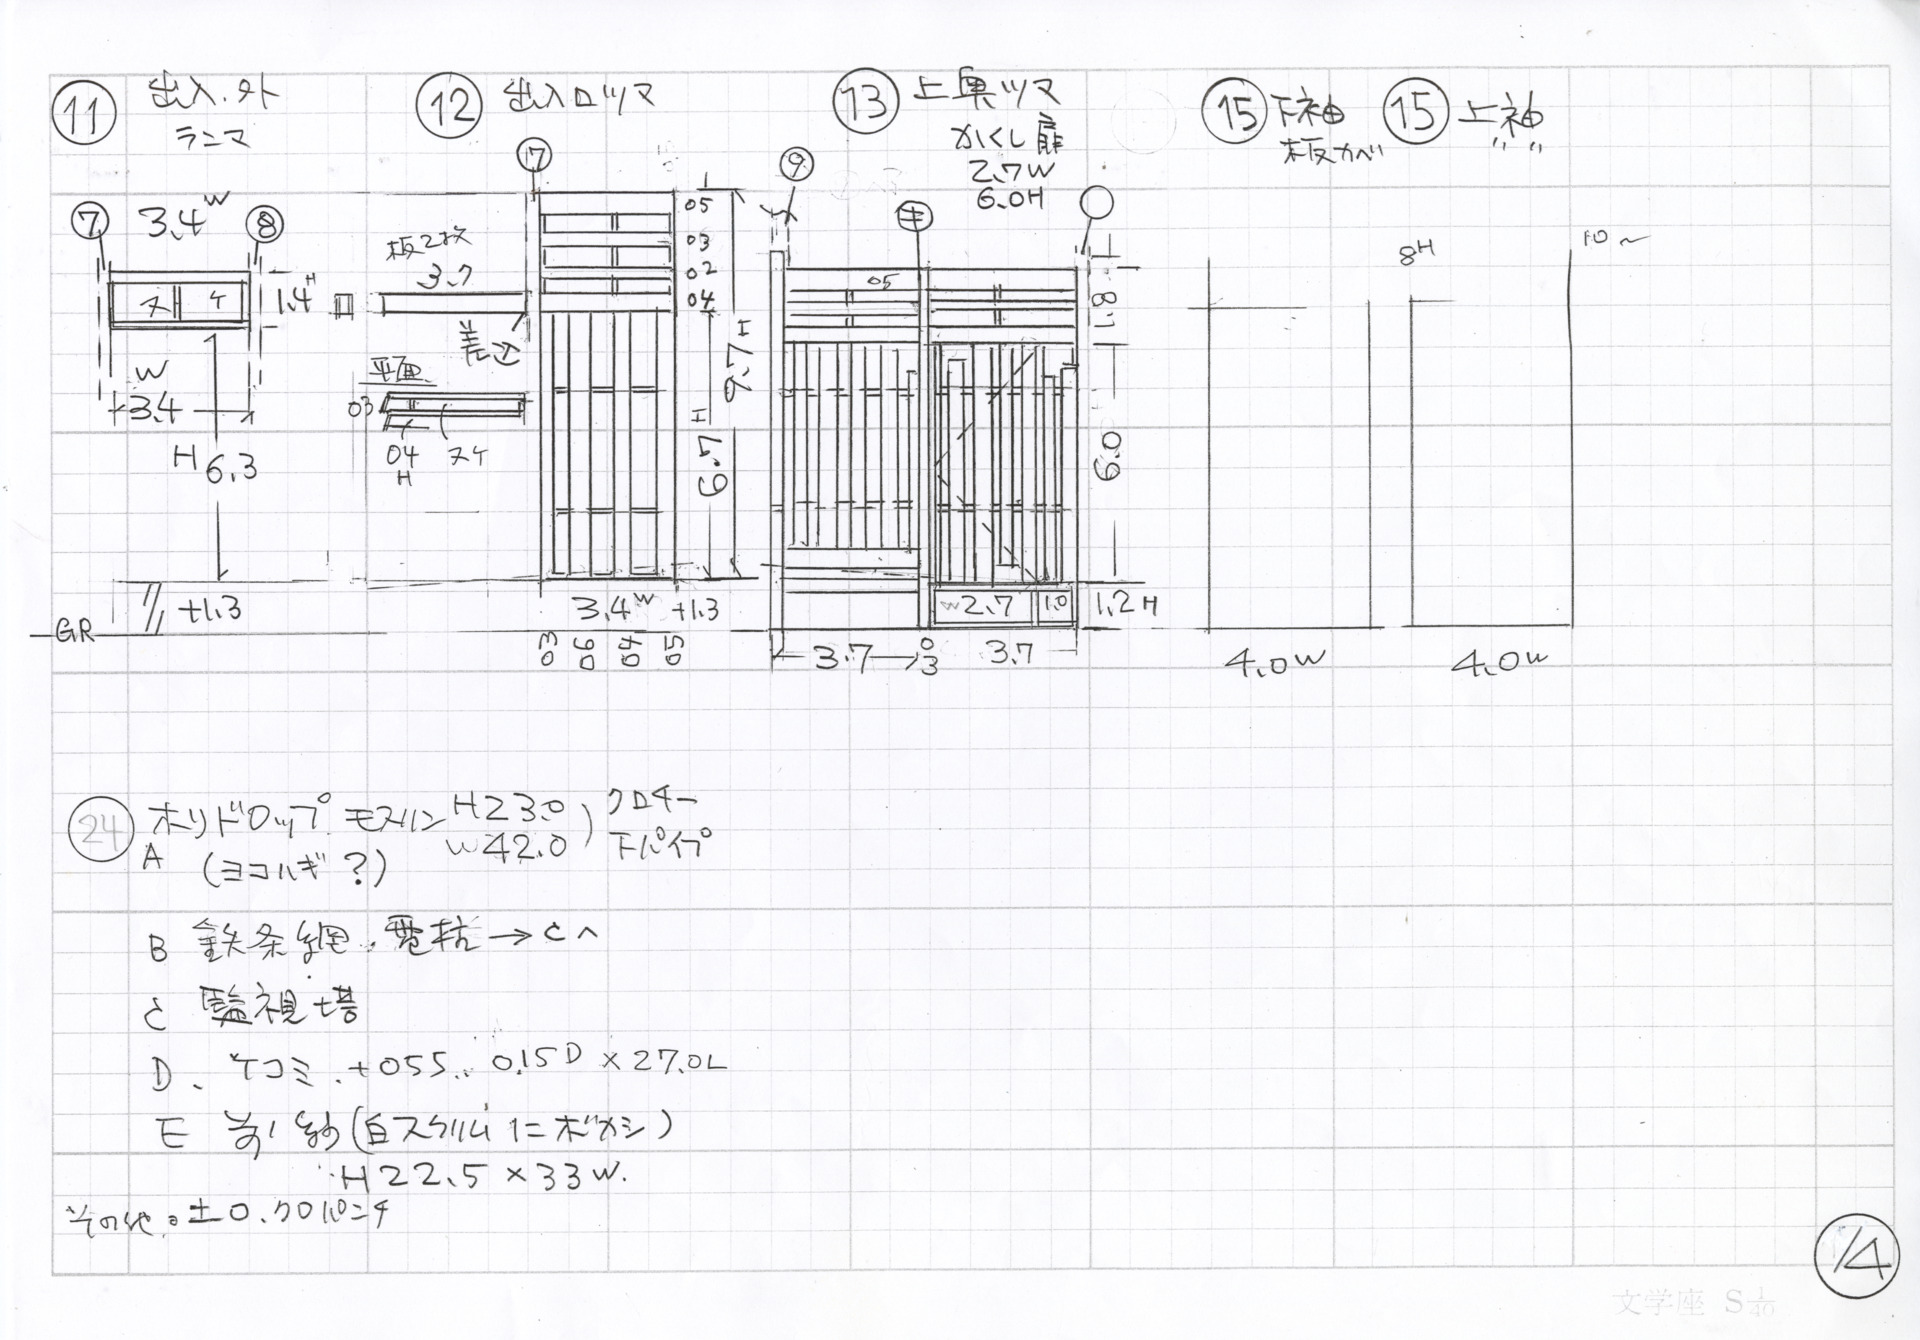 11 出入.外
ランマ
12 出入口ツマ
13 上奥ツマ
かくし扉
2.7W
6.0H
15 下袖
板カベ
15 上袖
〃 〃
7 3.4W 8
ヌケ
1.4H
W
3.4
H6.3
+1.3
GR
板2枚
3.7
差込
平面
03
04
H
ヌケ
7
05
03
02
04
9.7H
6.7H
3.4W +1.3
03 06 04 05
9
キ
05
1.8
6.0
W2.7 1.0
1.2H
3.7 03 3.7
8H
10
4.0W
4.0W
24 ホリドロップ モスリン H23.0
W42.0
クロチー
下パイプ
A (ヨコハギ?)
B 鉄条網.電柱→Cへ
C 監視塔
D. ケコミ.+055.. 0.15D×27.0L
E 前紗(白スクリムにボカシ)
H22.5×33W.
その他。±0.クロパンチ
14
文学座 S1/40